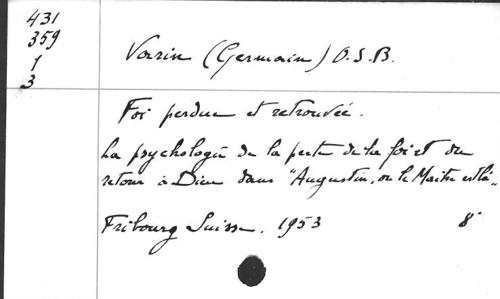 431
359
1
3
Varin (Germain) O.S.B.
Foi perdue et retrouvée.
La psychologie de la perte de la foi et du
retour à Dieu dans "Augustin, ou le Maître est là".
Fribourg Suisse. 1953 8°